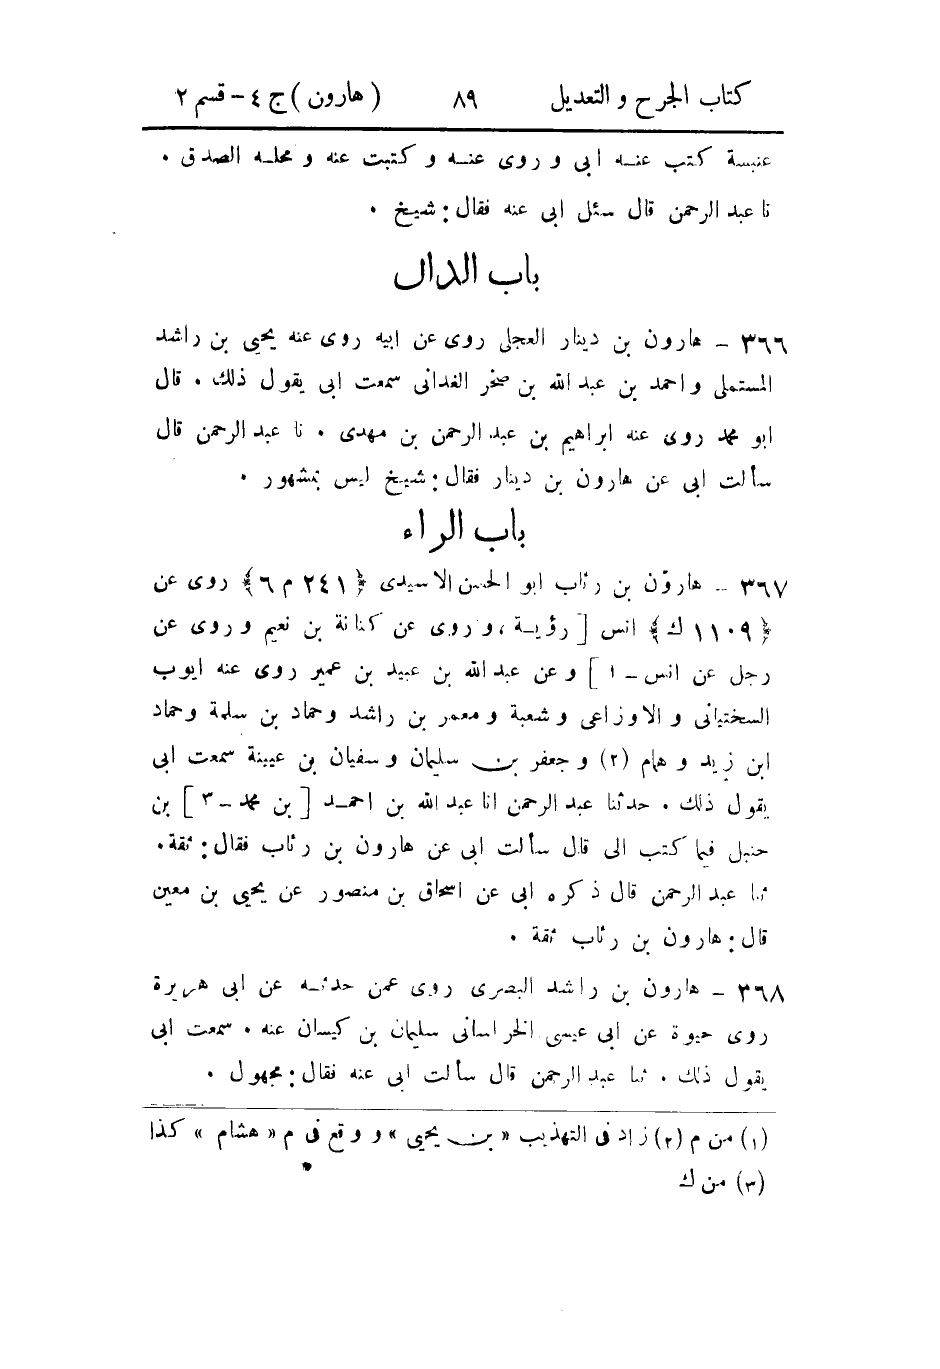 كتاب الجرح و التعديل ٨٩ ( هارون ) ج ٤ – قسم ٢
عنبسة كتب عنه ابى و روى عنه و كتبت عنه و محله الصدق .
نا عبد الرحمن قال سئل ابى عنه فقال : شيخ .
باب الدال
٣٦٦ – هارون بن دينار العجلى روى عن ابيه روى عنه يحيى بن راشد
المستملى و احمد بن عبد الله بن صخر الغدانى سمعت ابى يقول ذلك . قال
ابو محمد روى عنه ابراهيم بن عبد الرحمن بن مهدى . نا عبد الرحمن قال
سألت ابى عن هارون بن دينار فقال : شيخ ليس بمشهور .
باب الراء
٣٦٧ – هارون بن رئاب ابو الحسن الاسيدى ﴿ ٢٤١ م ٦ ﴾ روى عن
﴿ ١١٠٩ ك ﴾ انس [ رؤية ، و روى عن كنانة بن نعيم و روى عن
رجل عن انس – ١ ] و عن عبد الله بن عبيد بن عمير روى عنه ايوب
السختيانى و الاوزاعى و شعبة و معمر بن راشد وحماد بن سلمة وحماد
ابن زيد و همام (٢) و جعفر بن سليمان و سفيان بن عيينة سمعت ابى
يقول ذلك . حدثنا عبد الرحمن انا عبد الله بن احمد [ بن محمد – ٣ ] بن
حنبل فيما كتب الى قال سألت ابى عن هارون بن رئاب فقال : ثقة .
ثنا عبد الرحمن قال ذكره ابى عن اسحاق بن منصور عن يحيى بن معين
قال : هارون بن رئاب ثقة .
٣٦٨ – هارون بن راشد البصرى روى عمن حدثه عن ابى هريرة
روى حيوة عن ابى عيسى الخراسانى سليمان بن كيسان عنه . سمعت ابى
يقول ذلك . ثنا عبد الرحمن قال سألت ابى عنه فقال : مجهول .
(١) من م (٢) زاد فى التهذيب « بن يحيى » و وقع فى م « هشام » كذا
(٣) من ك